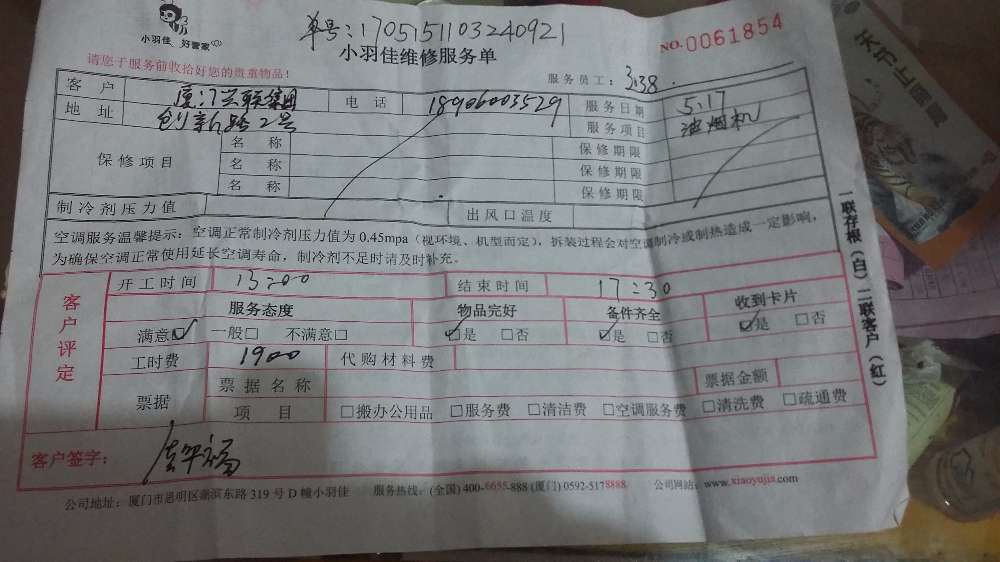 单号:1705151103240921
小羽佳 好管家
小羽佳维修服务单
NO.0061854
请您于服务前收拾好您的贵重物品!
服务员工:338.
客户 厦门兴联集团 电话 18906003529 服务日期 5.17
地址 创新路2号 服务项目 油烟机
保修项目 名称 保修期限
名称 保修期限
名称 保修期限
制冷剂压力值 出风口温度
空调服务温馨提示:空调正常制冷剂压力值为0.45mpa(视环境、机型而定),拆装过程会对空调制冷或制热造成一定影响,
为确保空调正常使用延长空调寿命,制冷剂不足时请及时补充。
客户评定
开工时间 13:00 结束时间 17:30
服务态度 物品完好 备件齐全 收到卡片
满意☑ 一般□ 不满意□ ☑是 □否 ☑是 □否 ☑是 □否
工时费 1900 代购材料费
票据 票据名称 票据金额
项目 □搬办公用品 □服务费 □清洁费 □空调服务费 □清洗费 □疏通费
客户签字:
公司地址:厦门市思明区湖滨东路319号D幢小羽佳 服务热线:(全国)400-6655-888 (厦门)0592-5178888 公司网站:www.xiaoyujia.com
一联存根(白)二联客户(红)